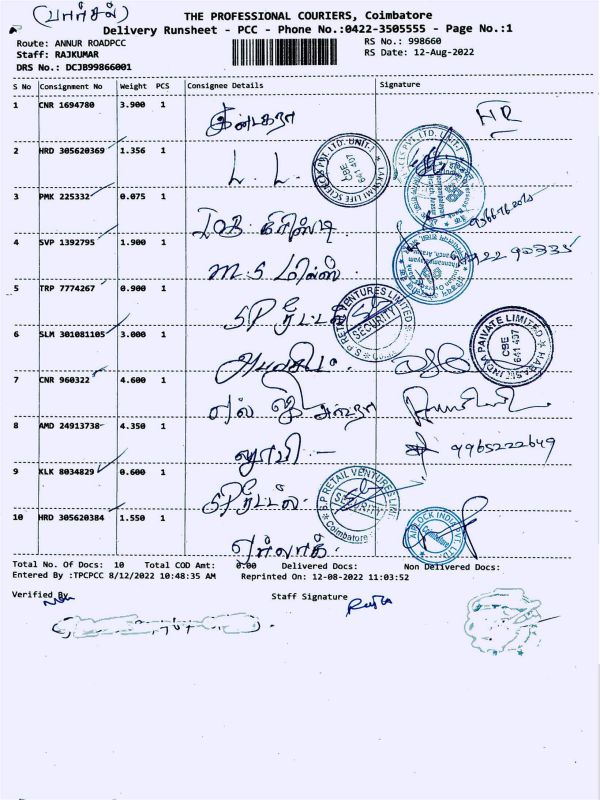 (பார்சல்)
THE PROFESSIONAL COURIERS, Coimbatore
Delivery Runsheet - PCC - Phone No.:0422-3505555 - Page No.:1
Route: ANNUR ROADPCC
RS No.: 998660
Staff: RAJKUMAR
RS Date: 12-Aug-2022
DRS No.: DCJB99866001
S No Consignment No Weight PCS Consignee Details Signature
1 CNR 1694780 3.900 1
2 HRD 305620369 1.356 1 L. L.
LAKSHMI LIFE SCIENCES PVT. LTD. UNIT-I CBE 641 407
3 PMK 225332 0.075 1 IOB
4 SVP 1392795 1.900 1 M.S மில்ஸ்
5 TRP 7774267 0.900 1 S.P ரீடடல்
S.P RETAIL VENTURES LIMITED SECURITY
6 SLM 301081105 3.000 1
INDIA PAIVATE LIMITED CBE 641 407
7 CNR 960322 4.600 1 எல் ஜி
8 AMD 24913738 4.350 1 9965222649
9 KLK 8034829 0.600 1 S.P ரீடடல்
S.P RETAIL VENTURES SECURITY Coimbatore
10 HRD 305620384 1.550 1 ஏர்லாக்
AIRLOCK INDIA PVT LTD Coimbatore
Total No. Of Docs: 10 Total COD Amt: 0.00 Delivered Docs: Non Delivered Docs:
Entered By :TPCPCC 8/12/2022 10:48:35 AM Reprinted On: 12-08-2022 11:03:52
Verified By
Staff Signature